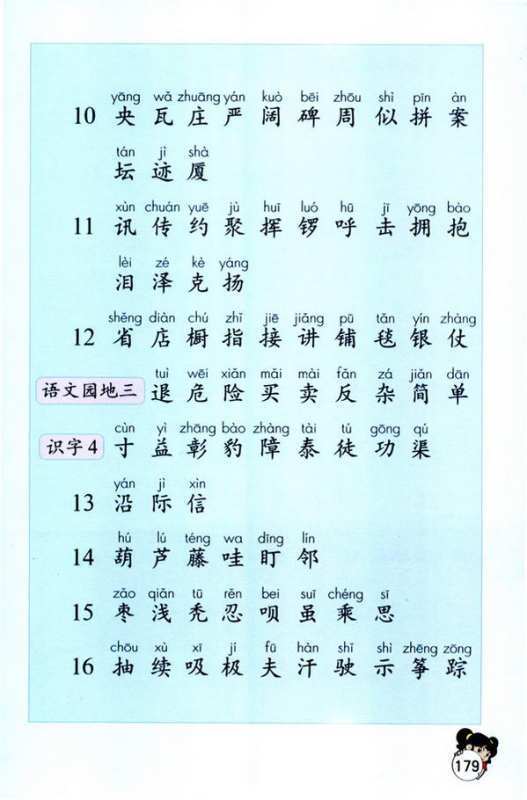 yāng wǎ zhuāng yán kuò bēi zhōu shì pīn àn
10 央 瓦 庄 严 阔 碑 周 似 拼 案
tán jì shà
坛 迹 厦
xùn chuán yuē jù huī luó hū jī yōng bào
11 讯 传 约 聚 挥 锣 呼 击 拥 抱
lèi zé kè yáng
泪 泽 克 扬
shěng diàn chú zhǐ jiē jiǎng pū tǎn yín zhàng
12 省 店 橱 指 接 讲 铺 毯 银 仗
tuì wēi xiǎn mǎi mài fǎn zá jiǎn dān
语文园地三 退 危 险 买 卖 反 杂 简 单
cùn yì zhāng bào zhàng tài tú gōng qú
识字 4 寸 益 彰 豹 障 泰 徒 功 渠
yán jì xìn
13 沿 际 信
hú lú téng wa dīng lín
14 葫 芦 藤 哇 盯 邻
zǎo qiǎn tū rěn bei suī chéng sī
15 枣 浅 秃 忍 呗 虽 乘 思
chōu xù xī jí fū hàn shǐ shì zhēng zōng
16 抽 续 吸 极 夫 汗 驶 示 筝 踪
179